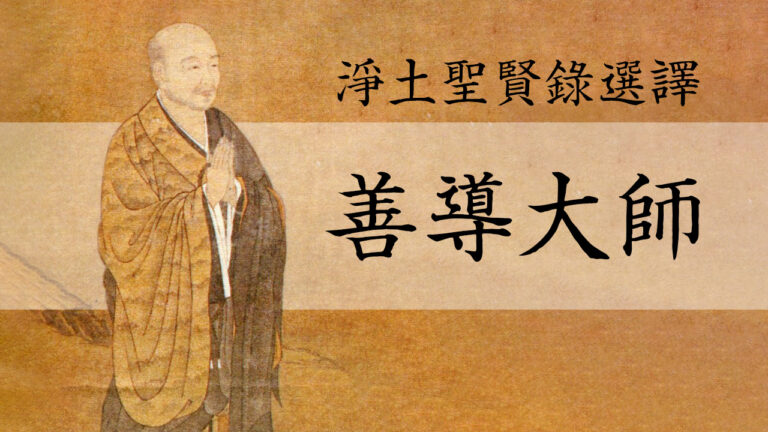 淨土聖賢錄選譯
善導大師